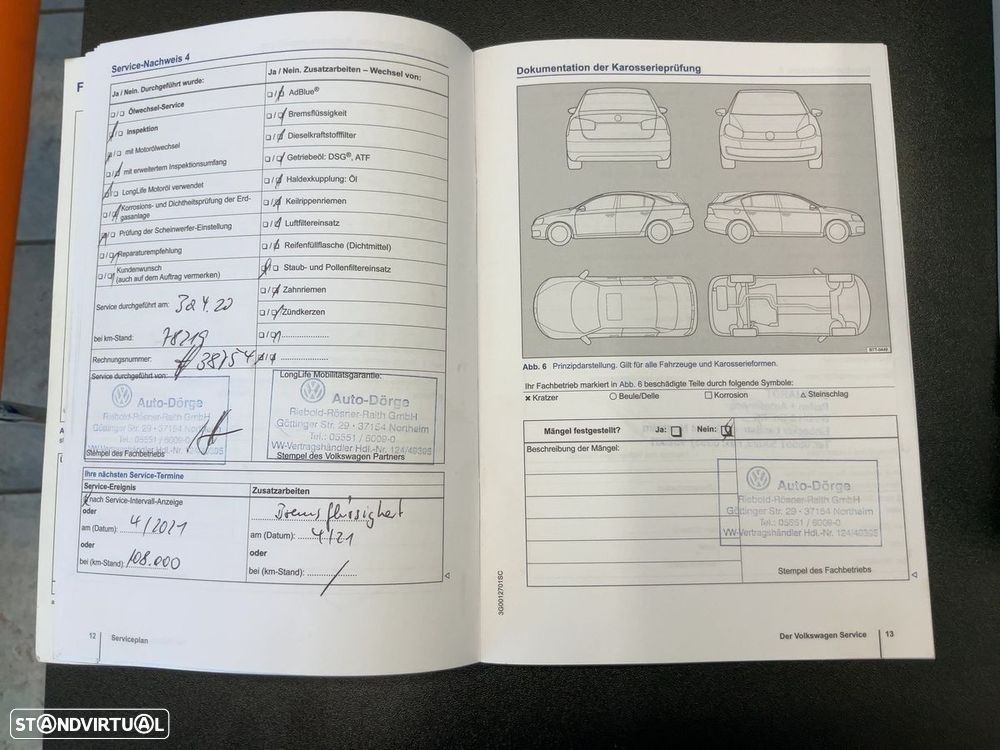 F
Service-Nachweis 4
Ja / Nein. Durchgeführt wurde:
Ja / Nein. Zusatzarbeiten – Wechsel von:
Ölwechsel-Service
AdBlue®
Inspektion
Bremsflüssigkeit
mit Motorölwechsel
Dieselkraftstofffilter
mit erweitertem Inspektionsumfang
Getriebeöl: DSG®, ATF
LongLife Motoröl verwendet
Haldexkupplung: Öl
Korrosions- und Dichtheitsprüfung der Erd-
gasanlage
Keilrippenriemen
Prüfung der Scheinwerfer-Einstellung
Luftfiltereinsatz
Reparaturempfehlung
Reifenfüllflasche (Dichtmittel)
Kundenwunsch
(auch auf dem Auftrag vermerken)
Staub- und Pollenfiltereinsatz
Zahnriemen
Service durchgeführt am:
Zündkerzen
bei km-Stand: 78219
Rechnungsnummer: 38754
Service durchgeführt von:
LongLife Mobilitätsgarantie:
Auto-Dörge
Riebold-Rösner-Raith GmbH
Göttinger Str. 29 · 37154 Northeim
Tel.: 05551 / 6009-0
VW-Vertragshändler Hdl.-Nr. 124/49395
Stempel des Fachbetriebs
Auto-Dörge
Riebold-Rösner-Raith GmbH
Göttinger Str. 29 · 37154 Northeim
Tel.: 05551 / 6009-0
VW-Vertragshändler Hdl.-Nr. 124/49395
Stempel des Volkswagen Partners
Ihre nächsten Service-Termine
Service-Ereignis
Zusatzarbeiten
nach Service-Intervall-Anzeige
Bremsflüssigkeit
oder
am (Datum): 4/2021
am (Datum): 4/21
oder
oder
bei (km-Stand): 108.000
bei (km-Stand):
12 Serviceplan
Dokumentation der Karosserieprüfung
B7T-0449
Abb. 6 Prinzipdarstellung. Gilt für alle Fahrzeuge und Karosserieformen.
Ihr Fachbetrieb markiert in Abb. 6 beschädigte Teile durch folgende Symbole:
× Kratzer ○ Beule/Delle □ Korrosion △ Steinschlag
Mängel festgestellt? Ja: Nein:
Beschreibung der Mängel:
Auto-Dörge
Riebold-Rösner-Raith GmbH
Göttinger Str. 29 · 37154 Northeim
Tel.: 05551 / 6009-0
VW-Vertragshändler Hdl.-Nr. 124/49395
Stempel des Fachbetriebs
3G0012701SC
Der Volkswagen Service 13
STANDVIRTUAL